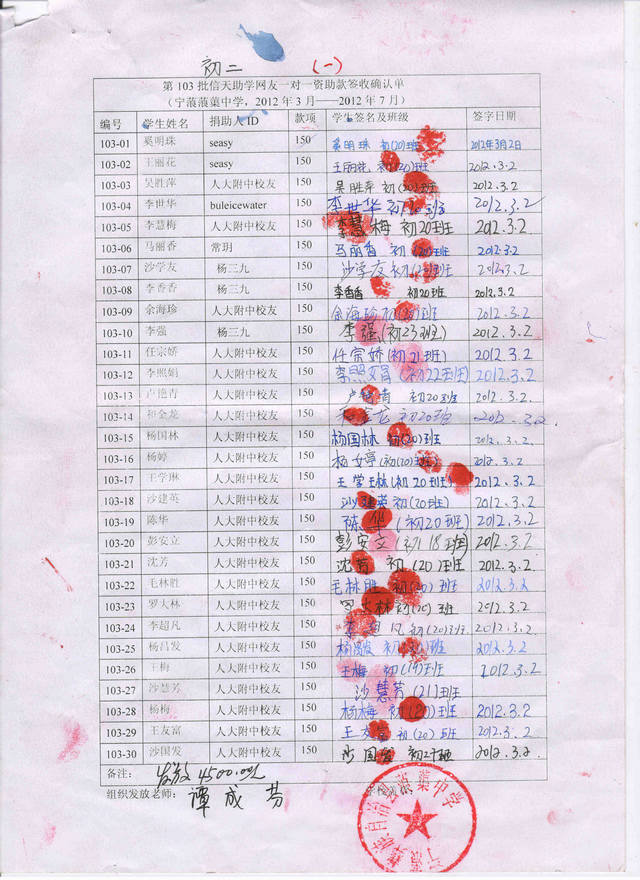 初二 (一)
第103批信天助学网友一对一资助款签收确认单
(宁蒗蒗蕖中学，2012年3月——2012年7月)
编号 学生姓名 捐助人ID 款项 学生签名及班级 签字日期
103-01 奚明珠 seasy 150 奚明珠 初(20)班 2012年3月2日
103-02 王丽花 seasy 150 王丽花 初(20)班 2012.3.2
103-03 吴胜萍 人大附中校友 150 吴胜萍 初(20)班 2012.3.2
103-04 李世华 buleicewater 150 李世华 初20班 2012.3.2
103-05 李慧梅 人大附中校友 150 李慧梅 初20班 2012.3.2
103-06 马丽香 常玥 150 马丽香 初(20)班 2012.3.2
103-07 沙学友 杨三九 150 沙学友 初 班 2012.3.2
103-08 李香香 杨三九 150 李香香 初20班 2012.3.2
103-09 余海珍 人大附中校友 150 余海珍 初 班 2012.3.2
103-10 李强 杨三九 150 李强(初23班) 2012.3.2
103-11 任宗娇 人大附中校友 150 任宗娇(初21班) 2012.3.2
103-12 李照娟 人大附中校友 150 李照娟(初22班) 2012.3.2
103-13 卢艳青 人大附中校友 150 卢 青 初20班 2012.3.2
103-14 和金龙 人大附中校友 150 和金龙 初20班 2012.3.2
103-15 杨国林 人大附中校友 150 杨国林 初(20)班 2012.3.2
103-16 杨婷 人大附中校友 150 杨婷(初(20)班) 2012.3.2
103-17 王学琳 人大附中校友 150 王学琳(初20班) 2012.3.2
103-18 沙建英 人大附中校友 150 沙建英 初(20班) 2012.3.2
103-19 陈华 人大附中校友 150 陈华(初20班) 2012.3.2
103-20 彭安立 人大附中校友 150 彭安立(初18班) 2012.3.2
103-21 沈芳 人大附中校友 150 沈芳 初(20)班 2012.3.2
103-22 毛林胜 人大附中校友 150 毛林胜 初(20)班 2012.3.2
103-23 罗大林 人大附中校友 150 罗大林 初(20)班 2012.3.2
103-24 李超凡 人大附中校友 150 李超凡 初(20)班 2012.3.2
103-25 杨昌发 人大附中校友 150 杨昌发 初 班 2012.3.2
103-26 王梅 人大附中校友 150 王梅 初(19)班 2012.3.2
103-27 沙慧芳 人大附中校友 150 沙慧芳(21)班
103-28 杨梅 人大附中校友 150 杨梅 初(20)班 2012.3.2
103-29 王友富 人大附中校友 150 王友富 初(20)班 2012.3.2
103-30 沙国发 人大附中校友 150 沙国发 初 班 2012.3.2
备注： 发放4500.00元
组织发放老师： 谭成芬
自治县蒗蕖中学